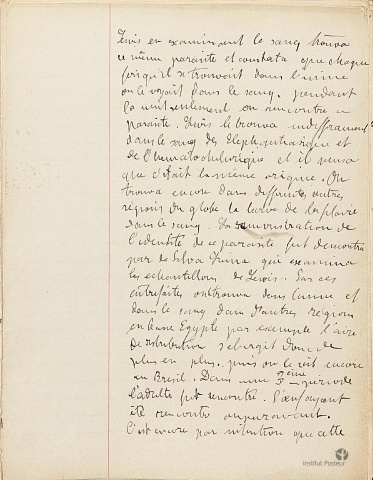 Lewis en examinant le sang trouva
ce même parasite et constata que chaque
fois qu'il se trouvait dans l'urine
on le voyait dans le sang. pendant
la nuit seulement on rencontre ce
parasite. Lewis le trouva indifféremment
dans le sang des Elephantiasique et
de l'hematochylurique et il pensa
que c'était la même origine. On
trouva encore dans differentes autres
régions du globe la larve de la filaire
dans le sang. La demonstration de
l'identité de ce parasite fut demontrée
par da Silva qui examina
les echantillons de Lewis. Par ces
entrefaites on trouva dans l'urine et
dans le sang dans d'autres régions
en Basse Egypte par exemple l'aire
de distribution s'elargit donc de
plus en plus. puis on le vit encore
au Bresil. Dans une 3ème periode
l'adulte fut rencontré. l'œuf ayant
été rencontré auparavant.
C'est encore par que cette
Institut Pasteur